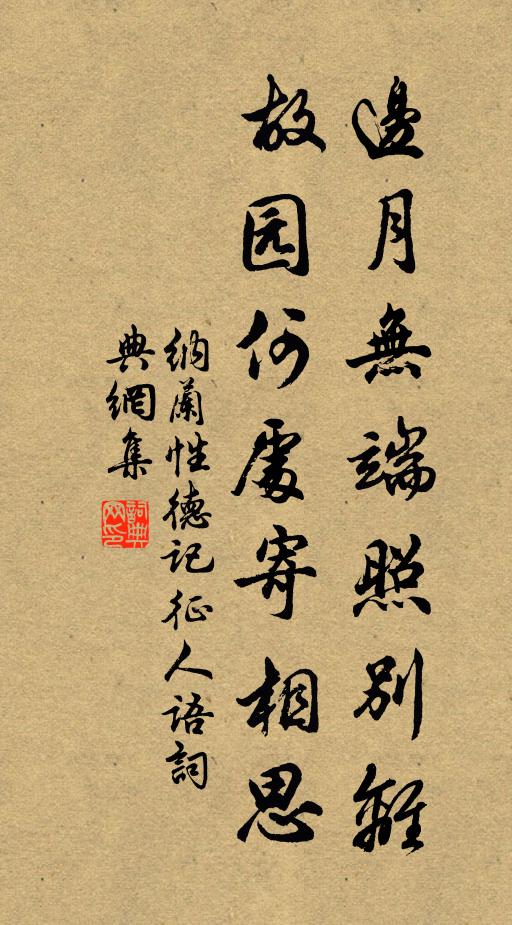 邊月無端照別離
故园何處寄相思
納蘭性德記征人語詞
典網集
詞典
网印